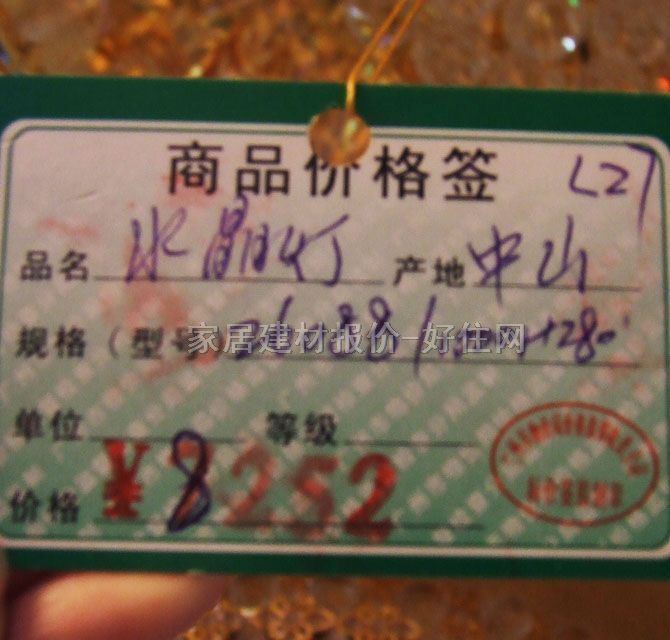 商品价格签 L27
品名 水晶灯 产地 中山
规格（型号
家居建材报价-好住网
单位 等级
价格 ¥8252